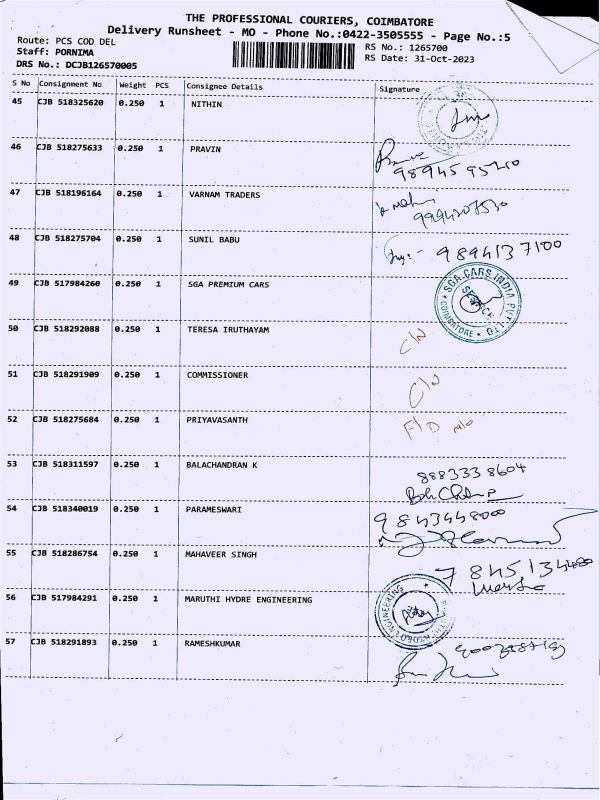 THE PROFESSIONAL COURIERS, COIMBATORE
Delivery Runsheet - MO - Phone No.:0422-3505555 - Page No.:5
Route: PCS COD DEL
Staff: PORNIMA
DRS No.: DCJB126570005
RS No.: 1265700
RS Date: 31-Oct-2023
S No Consignment No Weight PCS Consignee Details Signature
45 CJB 518325620 0.250 1 NITHIN
46 CJB 518275633 0.250 1 PRAVIN
47 CJB 518196164 0.250 1 VARNAM TRADERS
48 CJB 518275704 0.250 1 SUNIL BABU 9894137100
49 CJB 517984260 0.250 1 SGA PREMIUM CARS
SGA CARS INDIA PVT LTD
COIMBATORE
50 CJB 518292088 0.250 1 TERESA IRUTHAYAM C/N
51 CJB 518291909 0.250 1 COMMISSIONER C/N
52 CJB 518275684 0.250 1 PRIYAVASANTH F/D
53 CJB 518311597 0.250 1 BALACHANDRAN K 8883338604
54 CJB 518340019 0.250 1 PARAMESWARI 9843448000
55 CJB 518286754 0.250 1 MAHAVEER SINGH
56 CJB 517984291 0.250 1 MARUTHI HYDRE ENGINEERING
57 CJB 518291893 0.250 1 RAMESHKUMAR